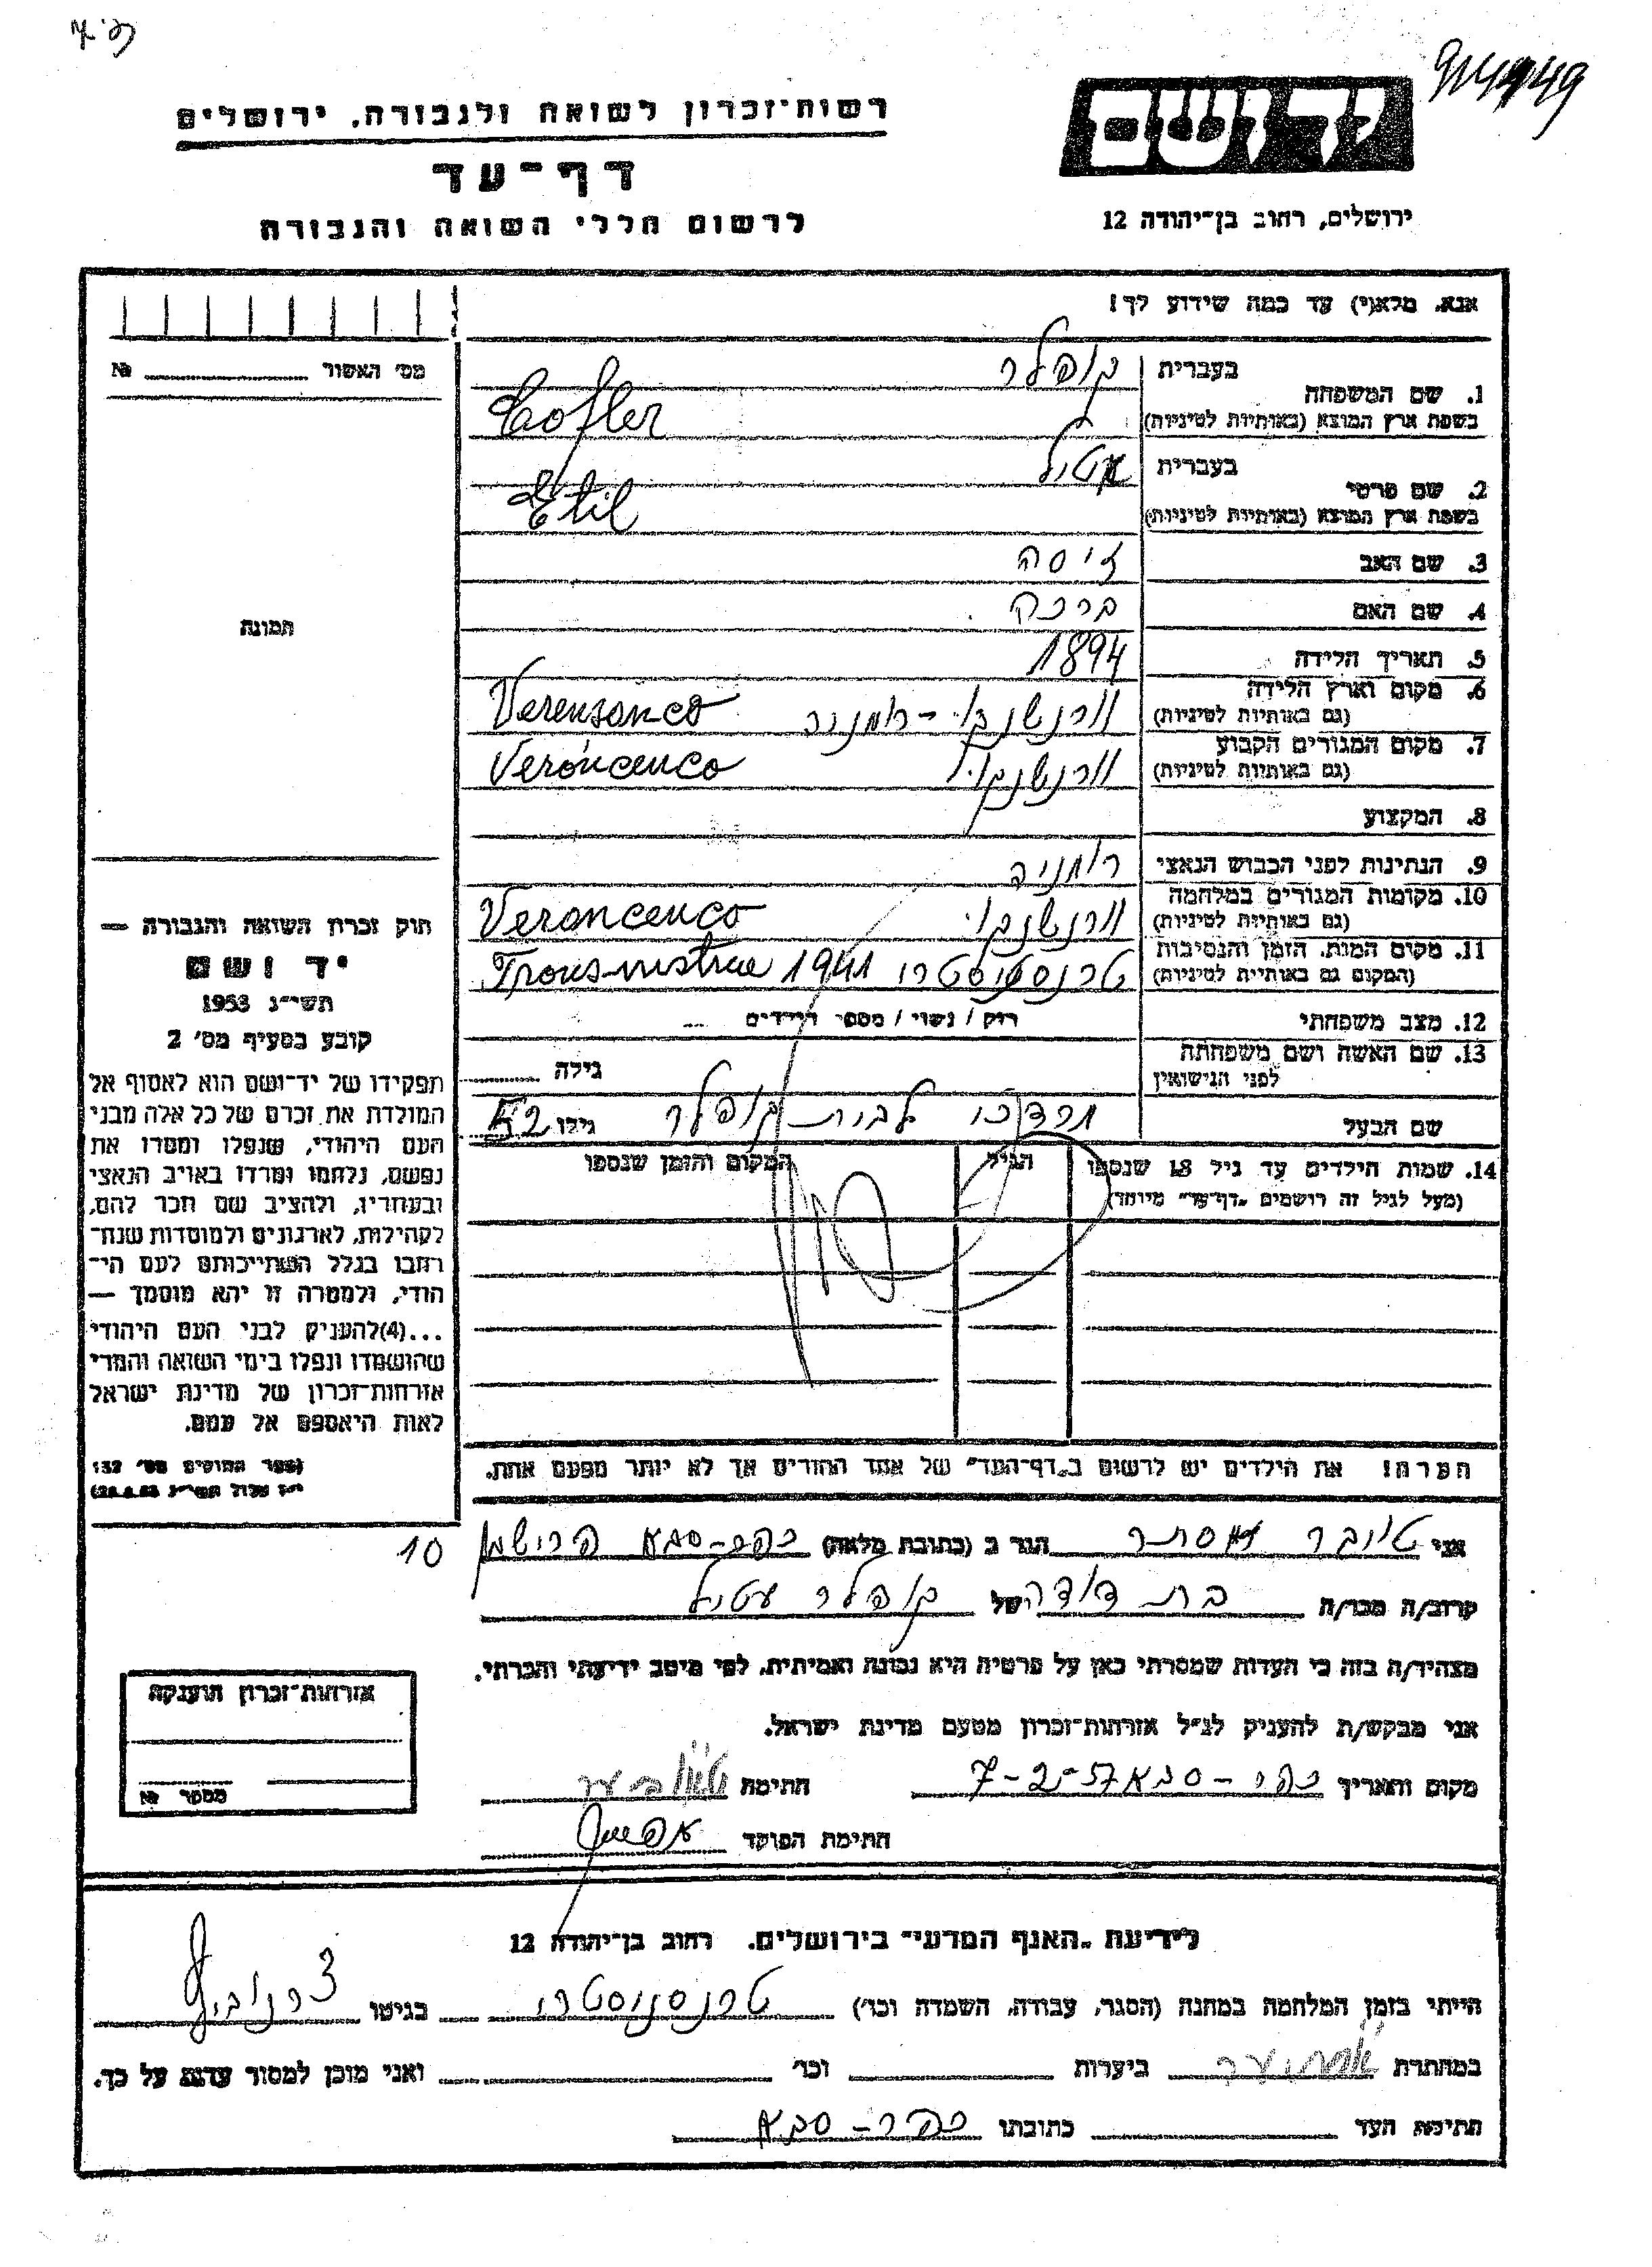 רשות־זכרון לשואה ולגבורה, ירושלים
דף־עד
לרשום חללי השואה והגבורה
ידושם
ירושלים, רחוב בן־יהודה 12
אנא, מלא(י) עד כמה שידוע לך!
מס׳ האשור №
תמונה
1. שם המשפחה
בעברית קופלר
בשפת ארץ המוצא (באותיות לטיניות) Cofler
2. שם פרטי
בעברית אטיל
בשפת ארץ המוצא (באותיות לטיניות) Etil
3. שם האב זיסה
4. שם האם ברכה
5. תאריך הלידה 1894
6. מקום וארץ הלידה
(גם באותיות לטיניות) ורנשנקו - רומניה Verensanco
7. מקום המגורים הקבוע
(גם באותיות לטיניות) ורנשנקו Veroncenco
8. המקצוע
9. הנתינות לפני הכבוש הנאצי רומניה
10. מקומות המגורים במלחמה
(גם באותיות לטיניות) ורנשנקו Veroncenco
11. מקום המות, הזמן והנסיבות
(המקום גם באותיות לטיניות) טרנסניסטרו 1941 Transnistrie
12. מצב משפחתי רוק / נשוי / מספר הילדים
13. שם האשה ושם משפחתה
לפני הנישואין גילה
שם הבעל מרדכי לבית קופלר גילו 52
14. שמות הילדים עד גיל 18 שנספו
(מעל לגיל זה רושמים „דף־עד״ מיוחד)
הגיל
המקום והזמן שנספו
הערה! את הילדים יש לרשום ב„דף־העד״ של אחד ההורים אך לא יותר מפעם אחת.
חוק זכרון השואה והגבורה —
יד ושם
תשי״ג 1953
קובע בסעיף מס׳ 2
תפקידו של יד־ושם הוא לאסוף אל
המולדת את זכרם של כל אלה מבני
העם היהודי, שנפלו ומסרו את
נפשם, נלחמו ומרדו באויב הנאצי
ובעוזריו, ולהציב שם וזכר להם,
לקהילות, לארגונים ולמוסדות שנח־
רבו בגלל השתייכותם לעם הי־
הודי, ולמטרה זו יהא מוסמך —
...(4)להעניק לבני העם היהודי
שהושמדו ונפלו בימי השואה והמרי
אזרחות־זכרון של מדינת ישראל
לאות היאספם אל עמם.
(ספר החוקים מס׳ 132
י״ז אלול תשי״ג 28.8.53)
אני טויבר אסתר הגר ב (כתובת מלאה) כפר-סבא הרישמן 10
קרוב/ה מכר/ה בת דודה של קופלר עטיל
מצהיר/ה בזה כי העדות שמסרתי כאן על פרטיה היא נכונה ואמיתית, לפי מיטב ידיעתי והכרתי.
אני מבקש/ת להעניק לנ״ל אזרחות־זכרון מטעם מדינת ישראל.
מקום ותאריך כפר-סבא 7-2-57 חתימה
חתימת הפוקד
אזרחות־זכרון הוענקה
מספר №
לידיעת „האגף המדעי״ בירושלים. רחוב בן־יהודה 12
הייתי בזמן המלחמה במחנה (הסגר, עבודה, השמדה וכר׳) טרנסניסטרו בגיטו צרנוביץ
במחתרת ביערות וכר׳ ואני מוכן למסור עדות על כך.
חתימת העד כתובתו כפר-סבא